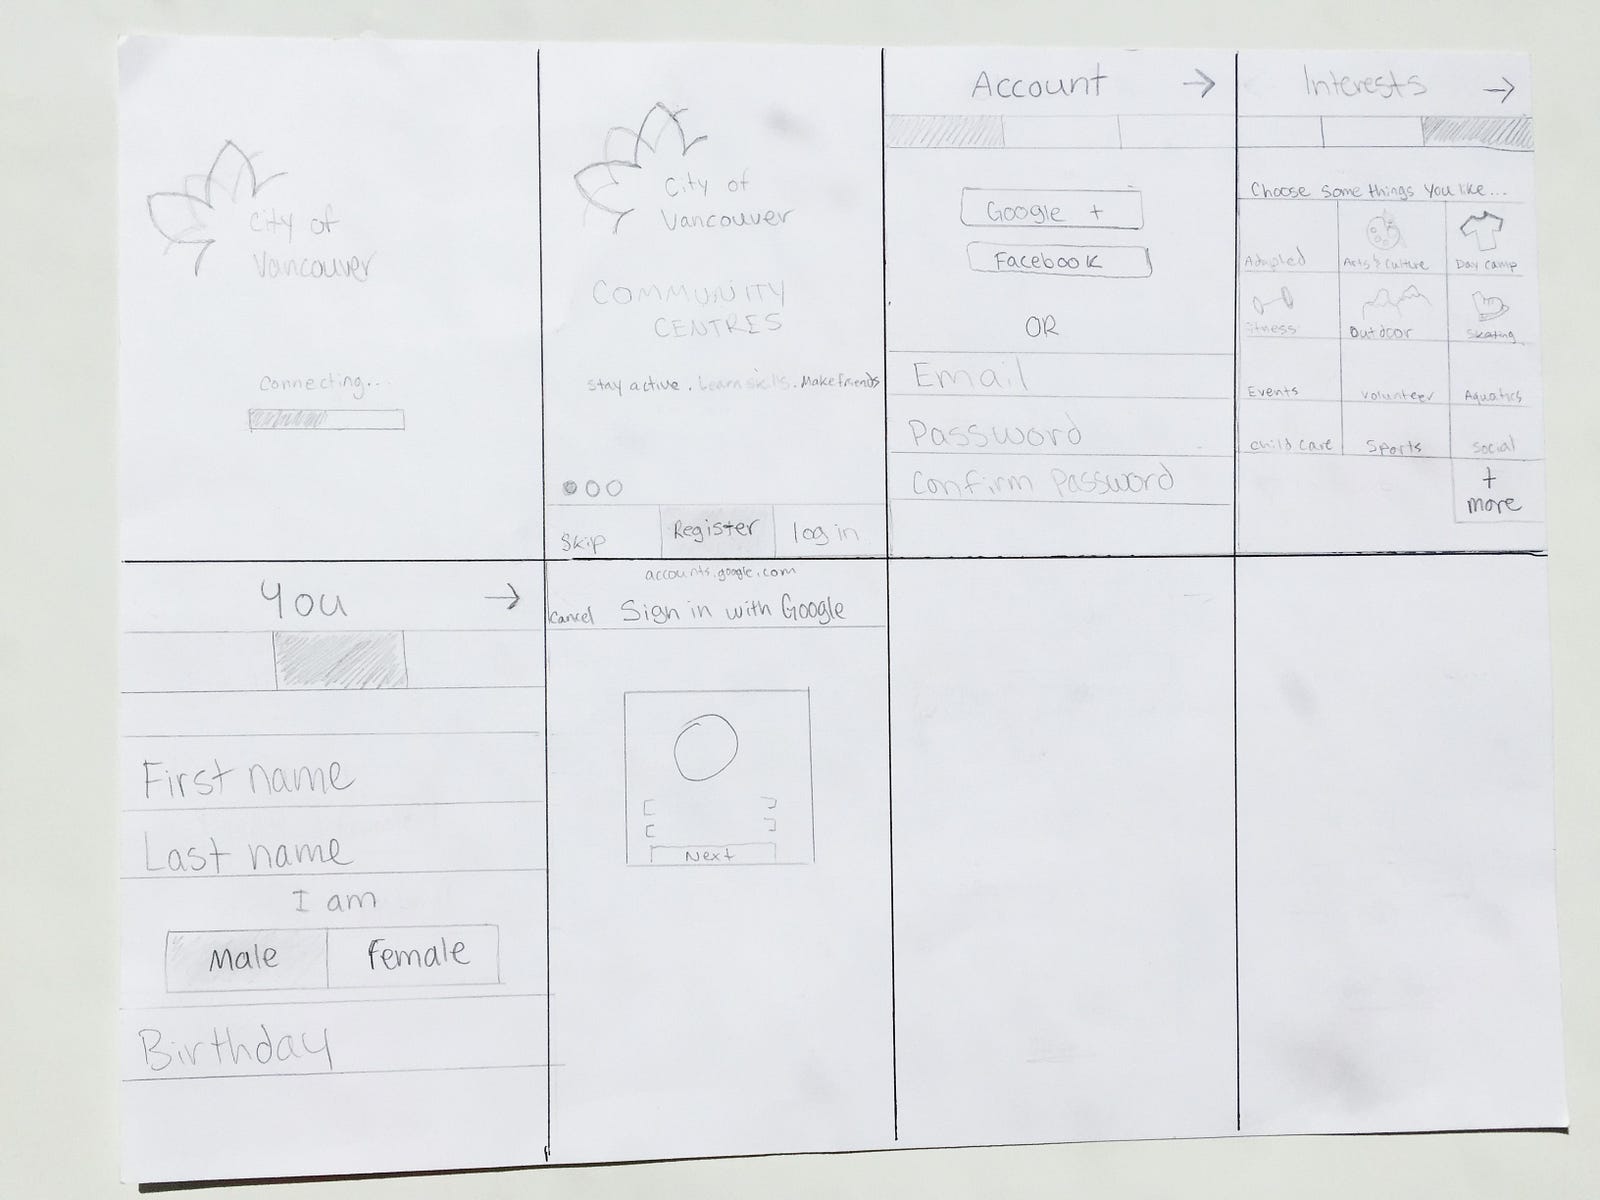 City of
Vancouver
Connecting...
City of
Vancouver
COMMUNITY
CENTRES
Stay active. Learn skills. Make friends
Skip
Register
log in
Account →
Google +
Facebook
OR
Email
Password
Confirm Password
Interests →
Choose some things you like...
Adapted
Arts & Culture
Day camp
Fitness
Outdoor
Skating
Events
Volunteer
Aquatics
Child care
Sports
Social
+
more
You →
First name
Last name
I am
Male
Female
Birthday
accounts.google.com
Cancel
Sign in with Google
Next